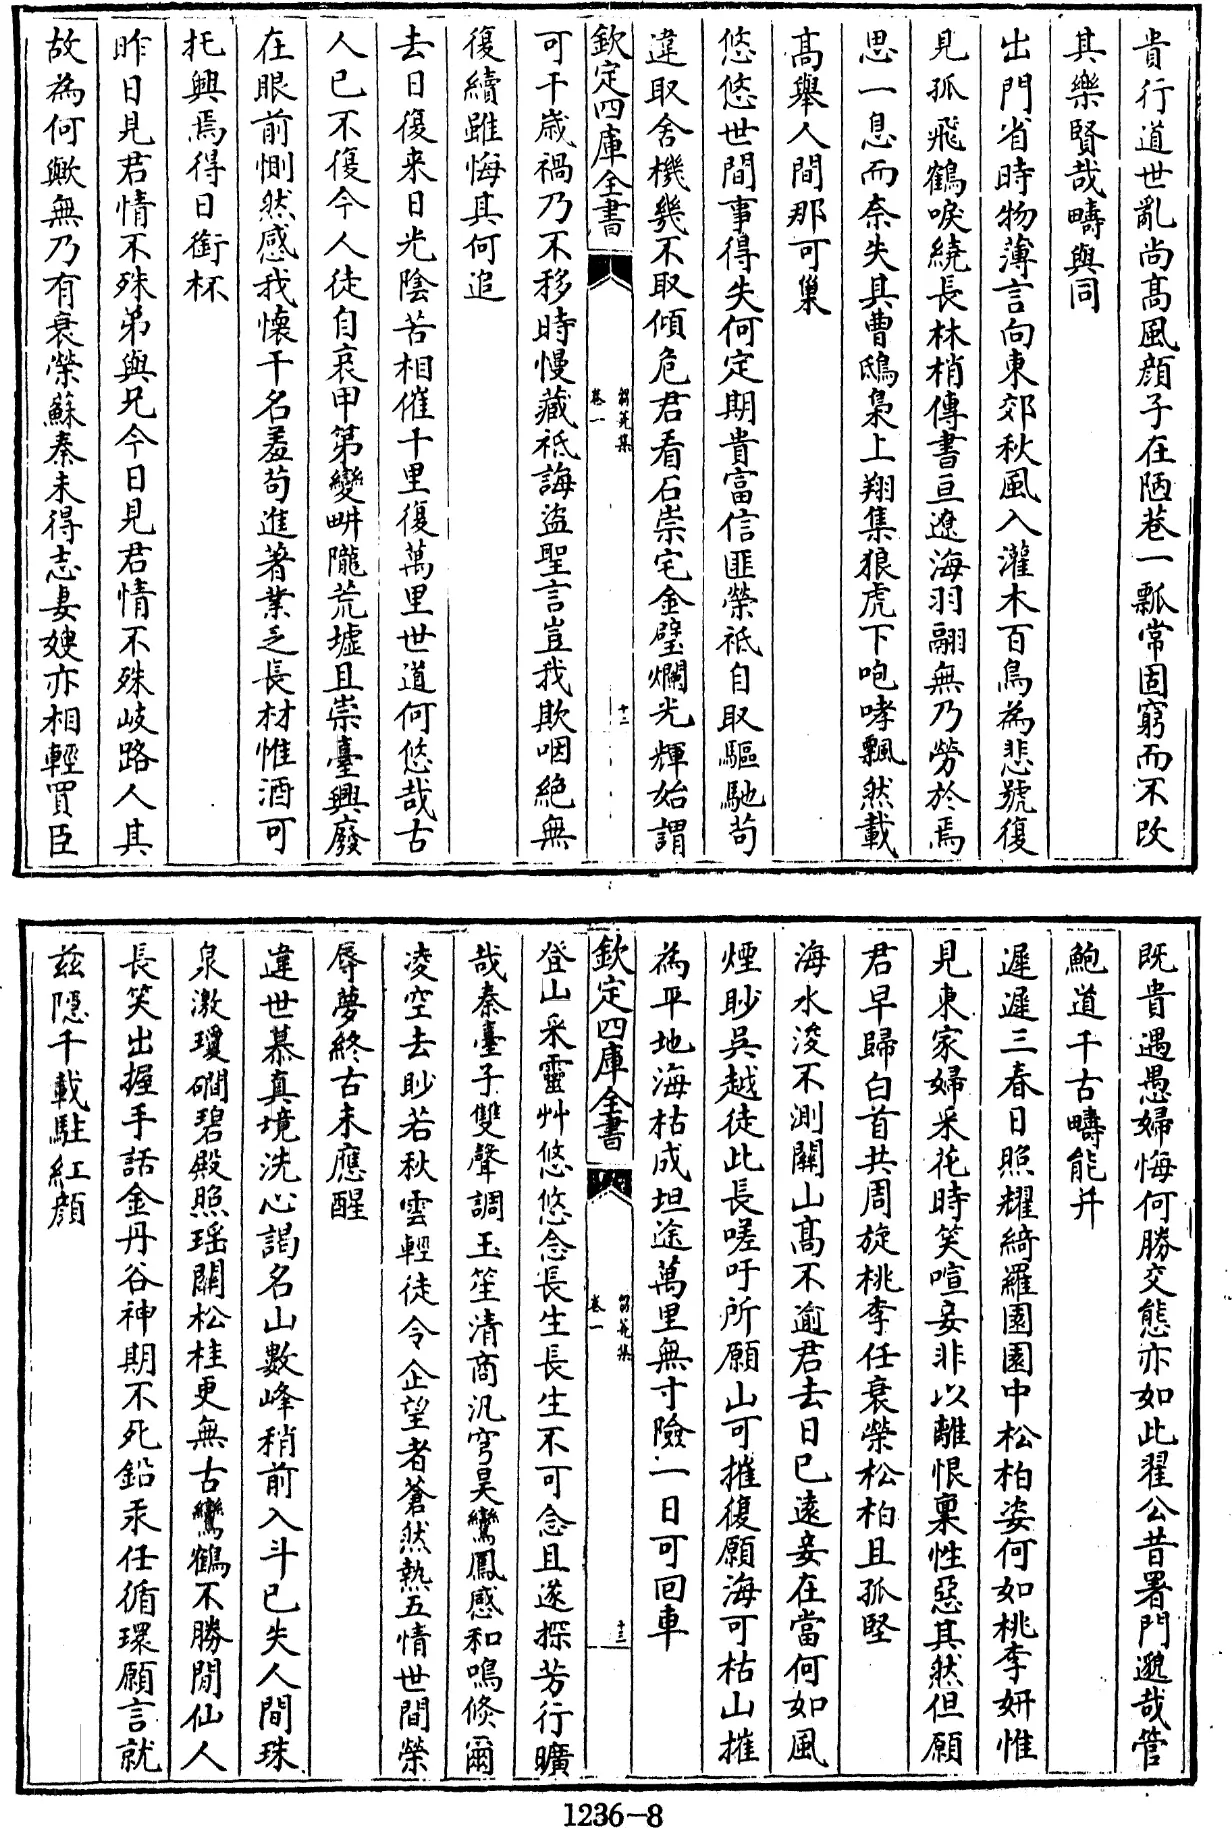 貴行道世亂尚髙風顔子在陋巷一瓢常固窮而不改
其樂賢哉疇與同
出門省時物薄言向東郊秋風入灌木百鳥為悲號復
見孤飛鶴唳繞長林梢傳書亘遼海羽翮無乃勞於焉
思一息而奈失其曹鴟梟上翔集狼虎下咆哮飄然載
髙舉人間那可巢
悠悠世間事得失何定期貴富信匪榮祇自取驅馳苟
違取舍機㡬不取傾危君看石崇宅金璧爛光輝始謂
欽定四庫全書
芻蕘集
卷一
十二
可千歳禍乃不移時慢藏祇誨盗聖言豈我欺咽絶無
復續雖悔其何追
去日復来日光陰苦相催千里復萬里世道何悠哉古
人已不復今人徒自哀甲第變畊隴荒墟且崇臺興廢
在眼前惻然感我懷干名羞苟進著業乏長材惟酒可
托興焉得日銜杯
昨日見君情不殊弟與兄今日見君情不殊岐路人其
故為何歟無乃有衰榮蘇秦未得志妻嫂亦相輕買臣
既貴遇愚婦悔何勝交態亦如此翟公昔署門邈哉管
鮑道千古疇能并
遲遲三春日照耀綺羅園園中松柏姿何如桃李妍惟
見東家婦采花時笑喧妾非以離恨稟性惡其然但願
君早歸白首共周旋桃李任衰榮松柏且孤堅
海水浚不測關山髙不逾君去日已遠妾在當何如風
煙眇吳越徒此長嗟吁所願山可摧復願海可枯山摧
為平地海枯成坦途萬里無寸險一日可回車
欽定四庫全書
芻蕘集
卷一
十三
登山采靈艸悠悠念長生長生不可念且遂探芳行曠
哉秦臺子雙聲調玉笙清商汎穹昊鸞鳳感和鳴倐爾
凌空去眇若秋雲輕徒令企望者蒼然熱五情世間榮
辱夢終古未應醒
違世慕真境洗心謁名山數峰稍前入斗已失人間珠
泉激瓊磵碧殿照瑶關松桂更無古鸞鶴不勝閒仙人
長笑出握手話金丹谷神期不死鉛汞任循環願言就
兹隠千載駐紅顔
1236-8